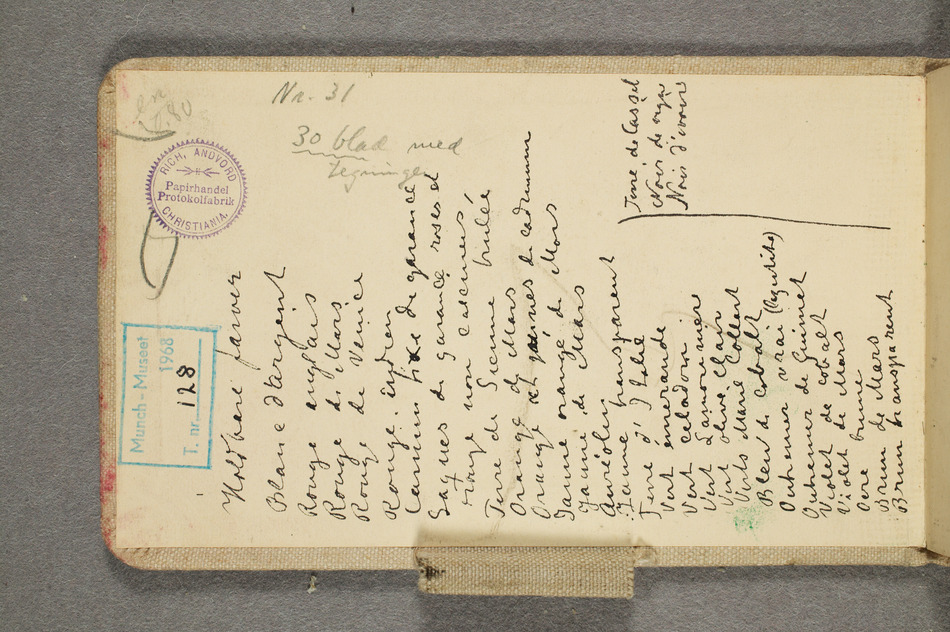 Nr. 31
30 blad med
tegninger
RICH. ANDVORD
Papirhandel
Protokolfabrik
CHRISTIANIA.
Munch-Museet
1968
T. nr. 128
Holdbare farver
Blanc d'argent
Rouge anglais
Rouge de Mars
Rouge de Venice
Rouge indien
Carmin fixe de garance
Laques de garance roses et
rouge non carminés
Terre de Sienne brulée
Orange de Mars
Orange et jaunes de cadmium
Jaune orangé de Mars
Jaune de Mars
Auréolin
Jaune transparent
Terre d'Italie
Vert émeraude
Vert celadon
Vert
Vert olive clair
Verts Marie Collert
Bleu de cobalt
Outremer vrai (lazulite)
Outremer de Guimet
Violet de cobalt
Violet de Mars
Ocre brune
Brun de Mars
Brun transparent
Terre de Cassel
Noir de vigne
Noir d'ivoire